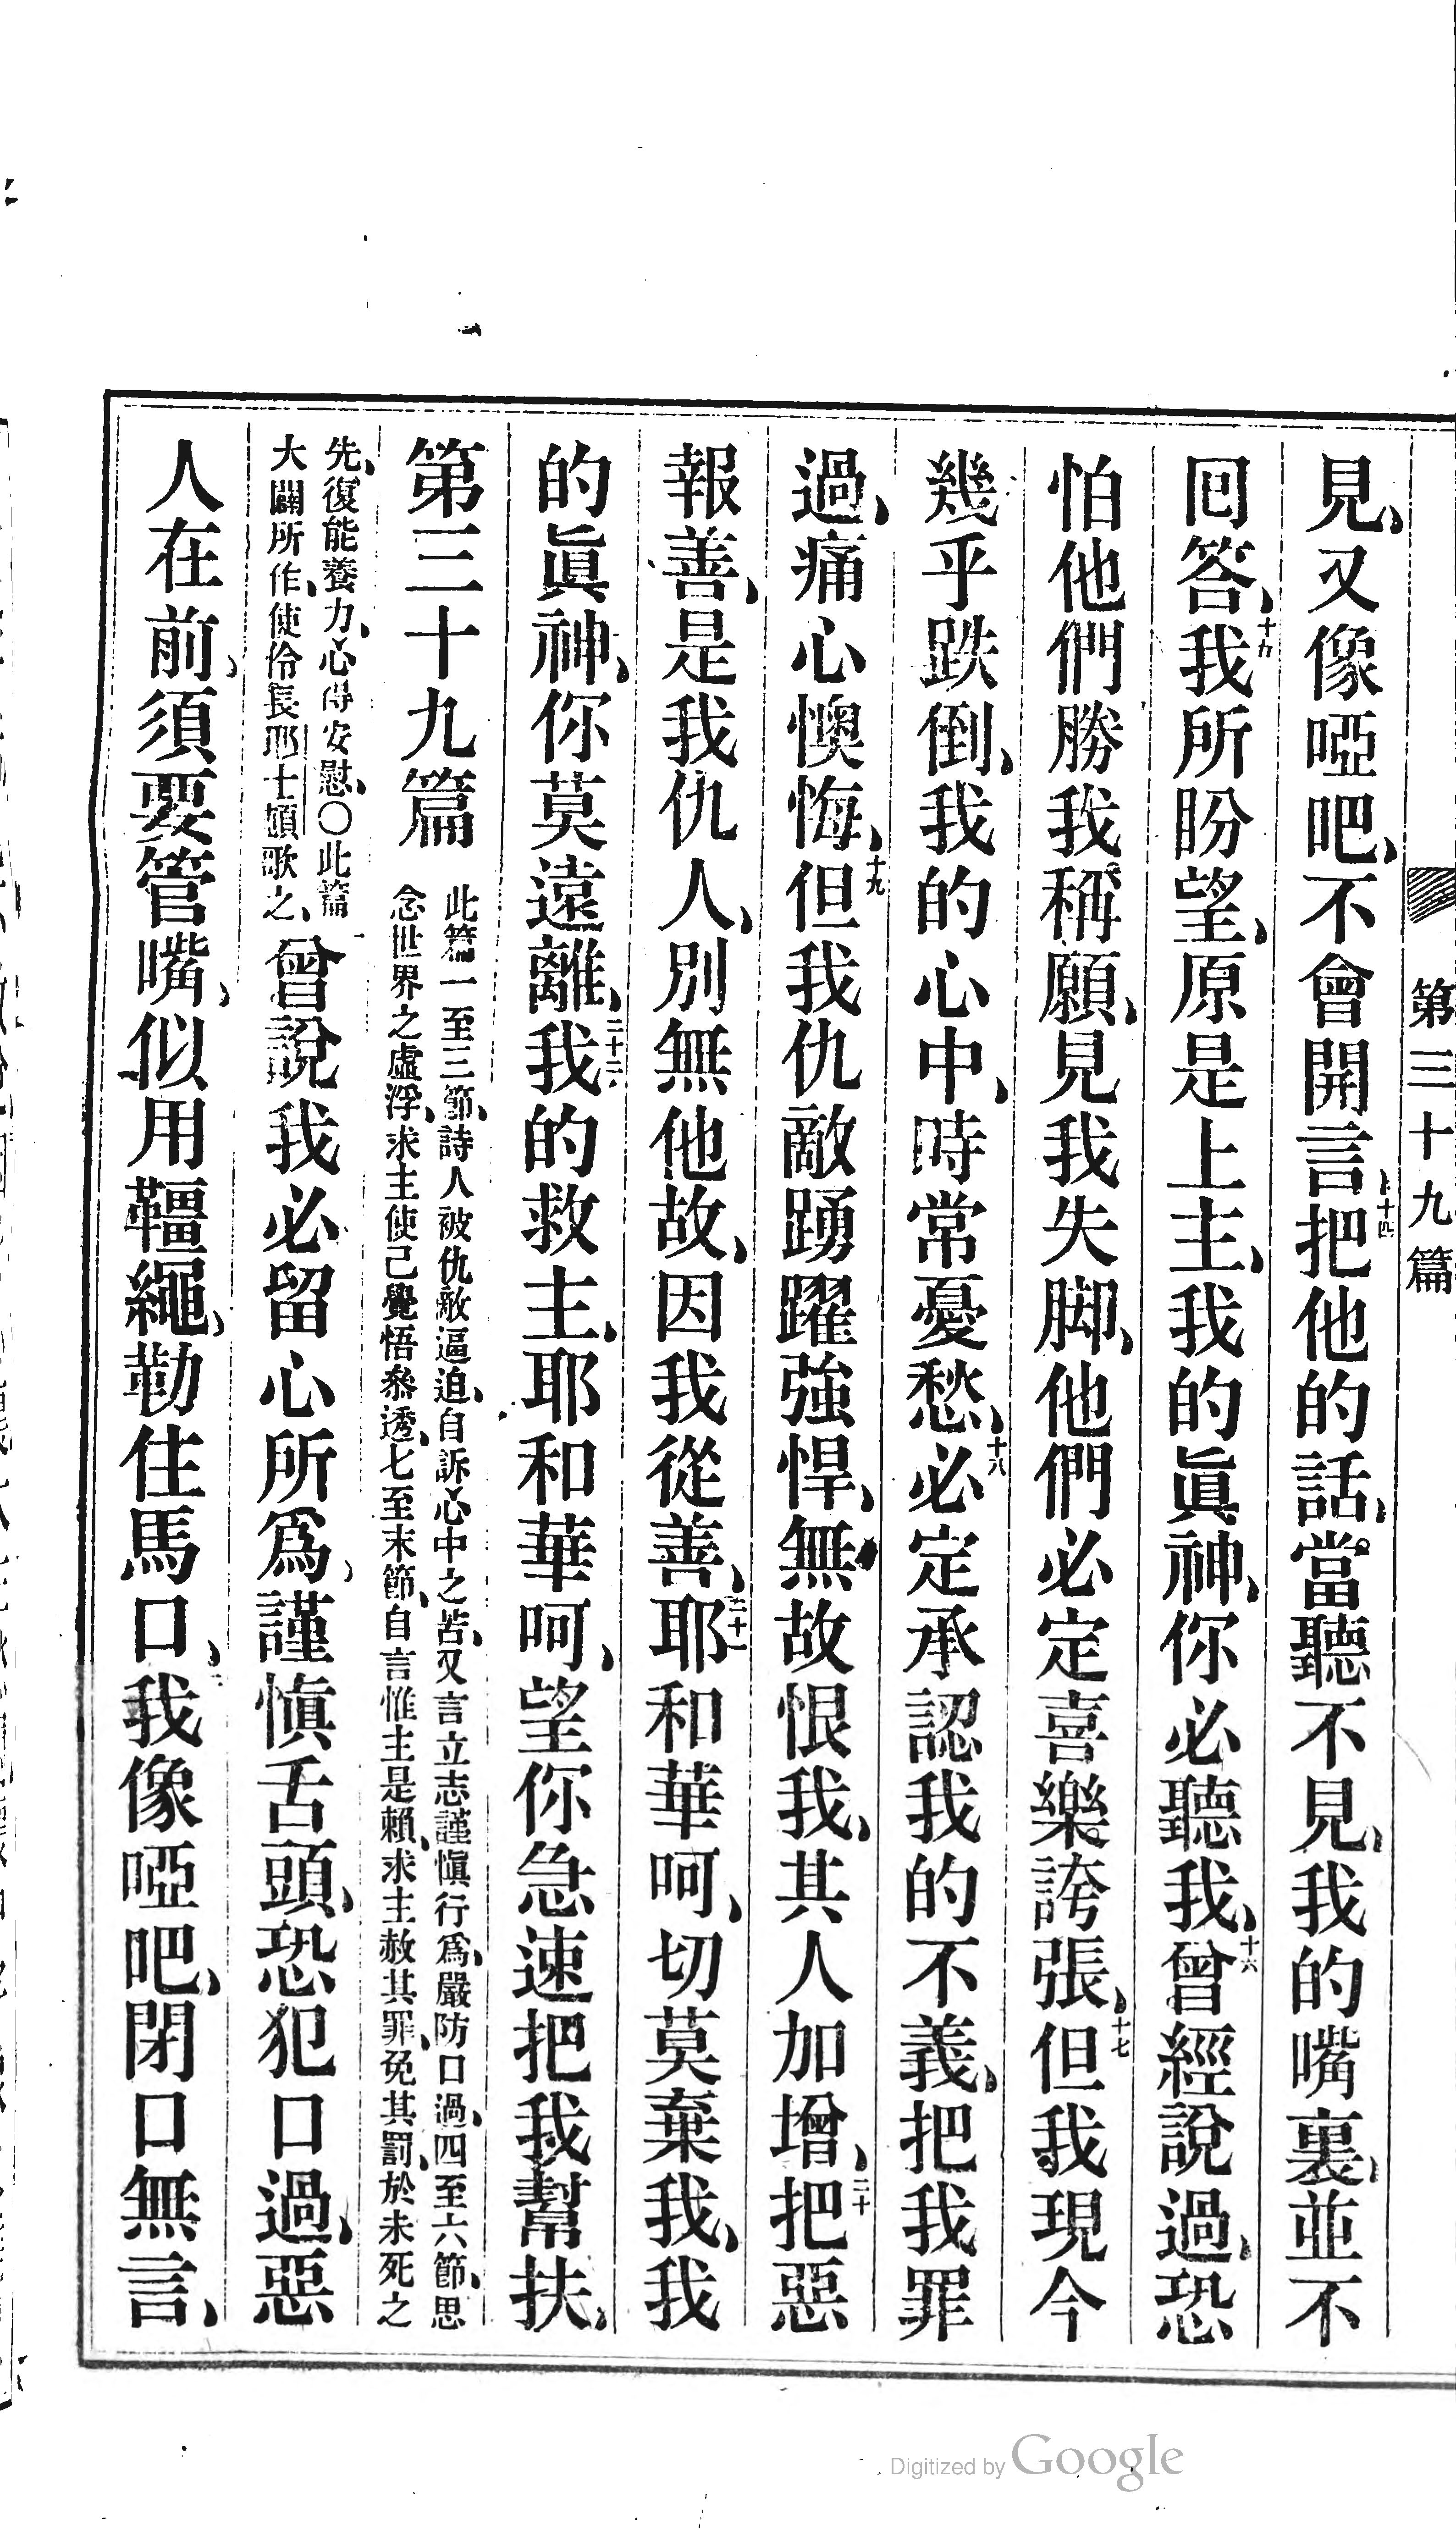 第三十九篇
見、又像啞吧、不會開言、十四把他的話、當聽不見、我的嘴裏、並不
囘答、十九我所盼望、原是上主、我的眞神、你必聽我、十六曾經說過、恐
怕他們勝我稱願、見我失脚、他們必定喜樂誇張、十七但我現今
幾乎跌倒、我的心中、時常憂愁、十八必定承認我的不義、把我罪
過、痛心懊悔、十九但我仇敵踴躍強悍、無故恨我、其人加增、二十把惡
報善、是我仇人、別無他故、因我從善、二十一耶和華呵、切莫棄我、我
的眞神、你莫遠離、二十二我的救主、耶和華呵、望你急速把我幫扶、
第三十九篇
此篇一至三節、詩人被仇敵逼迫、自訴心中之苦、又言立志謹愼行爲、嚴防口過、四至六節、思
念世界之虛浮、求主使己覺悟叅透、七至末節、自言惟主是賴、求主赦其罪、免其罰、於未死之
先、復能養力、心得安慰、〇此篇
大闢所作、使伶長耶士頓歌之、
曾說我必留心所爲、謹愼舌頭、恐犯口過、惡
人在前、須要管嘴、似用韁繩、勒住馬口、二我像啞吧、閉口無言、
Digitized by Google